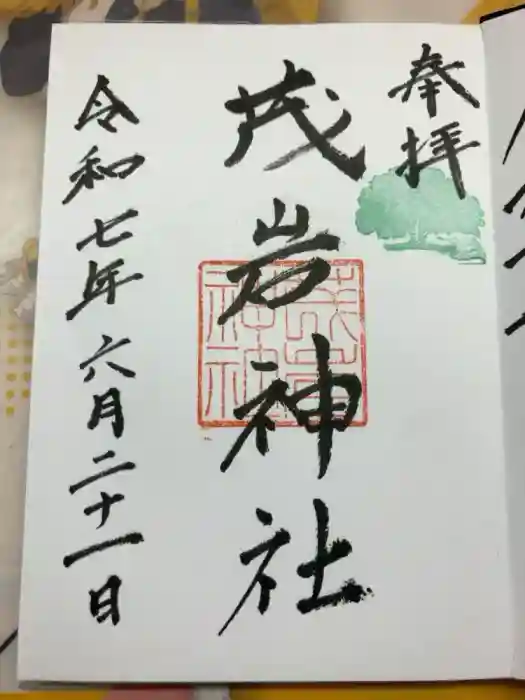 奉拝
茂岩神社
茂岩神社
令和七年六月二十一日